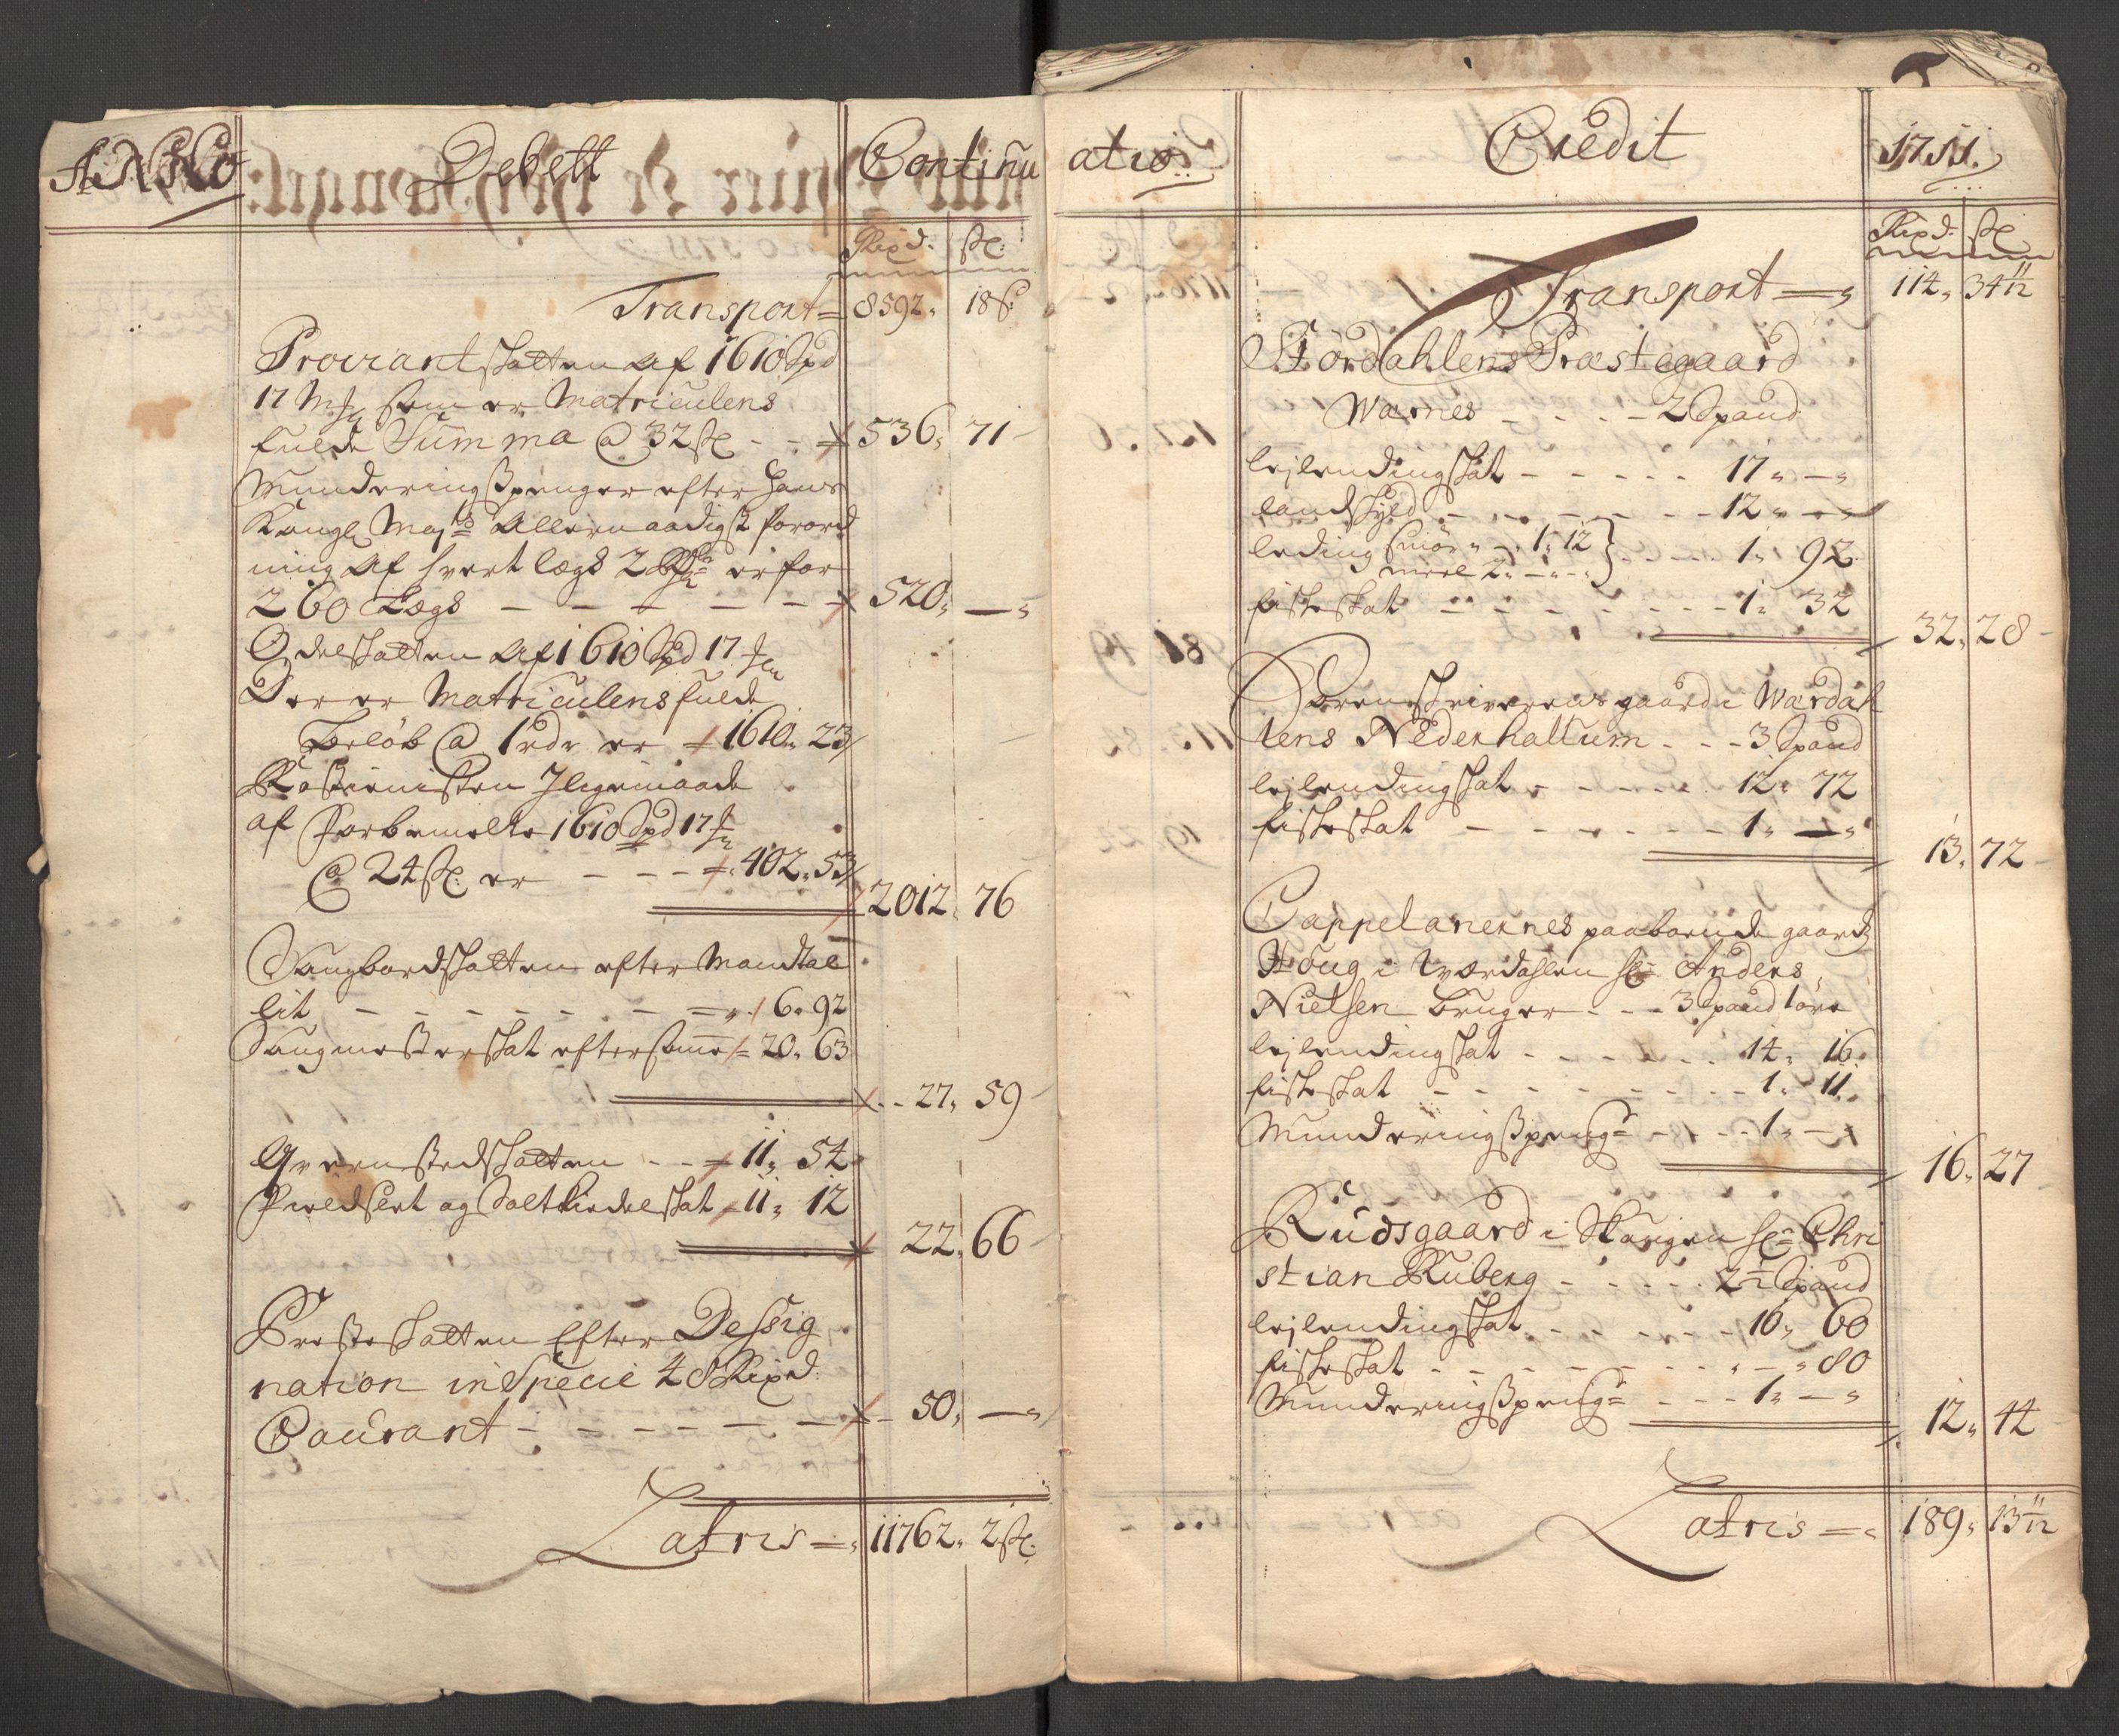 ANNO Debett Continu
Rixd. sk:
Transport = 8592. 18 s:
Proviantskatten af 1610 Spd
17 mk som er Matriculens
fulde Summa @ 32 sk - - 536. 71
Munderingspenger efter Hans
Kongl May.ts allernaadigst forord
ning af hvert læg 2 er for
260 Lægs - - - - - 520. —
Odelskatten af 1610 Spd 17
Der er Matriculens fulde
Beløb @ 1 rdr er 1610. 23
Rostienisten Jligemaade
af forbemelte 1610 Spd 17
@ 24 sk: er - - - 402. 53
2012. 76
Saugbordskatten efter Mandtal
lit - - - - - - 6. 92
Saugmesterskat efter same = 20. 63
27. 59
Qvernstedskatten - - 11. 54
Fieldslet og Saltkiedelskat 11. 12
22. 66
Presteskatten Efter Dessig
nation in Specie 48 Rixd.
Courant - - - - - - 50. —
Latris = 11762. 2 sk.
atio Credit 1711.
Rixd: sk
Transport = 114. 34 11/12
Størdahlens Præstegaard
Wærnes - - - - 2 Spand
lejlendingskat - - - - - 17. —
landskyld - - - - - - 12. —
leding smør - 1. 12
meel 2. — } - - - 1. 92
fiskeskat - - - - - - - 1. 32
32. 28
Sorenskriverens gaard i Wærdah
lens Nederhallum - - - 3 Spand
lejlendingskat - - - - - 12. 72
fiskeskat - - - - - - 1. —
13. 72
Cappelanernes paaboende gaard
Houg i Værdahlen hr Anders
Nielsen bruger - - - 3 Spand 1 øre
lejlendingskat - - - - - 14. 16
fiskeskat - - - - - - - 1. 11
Munderingspeng - - - 1. —
16. 27
Rudsgaard i Skougen hr Chri
stian Ruberg - - - - 2 1/2 Spand
lejlendingskat - - - - - 10. 60
fiskeskat - - - - - - - — 80
Munderingspeng - - - 1. —
12. 44
Latris = 189. 13 11/12